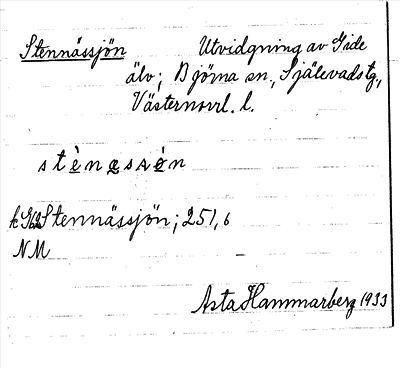 Stennässjön Utvidgning av Gide
älv; Björna sn., Själevads tg.,
Västernorrl. l.
Stennässjön; 251,6
NM
Asta Hammarberg 1933